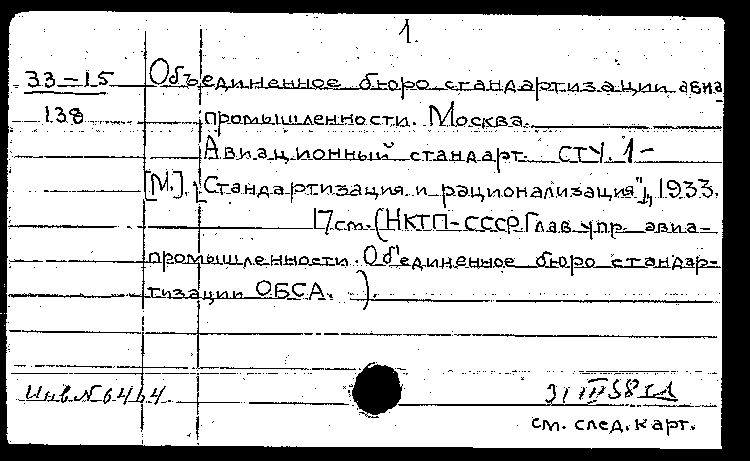 1.
33-15 Объединенное бюро стандартизации авиа
138 промышленности. Москва.
Авиационный стандарт. СТУ. 1-
[М.]. [„Стандартизация и рационализация"], 1933.
17см. (НКТП-СССР. Глав. упр. авиа-
промышленности. Об'единенное бюро стандар-
тизации ОБСА. ).
Инв N 6464
31 III 58
см. след. карт.